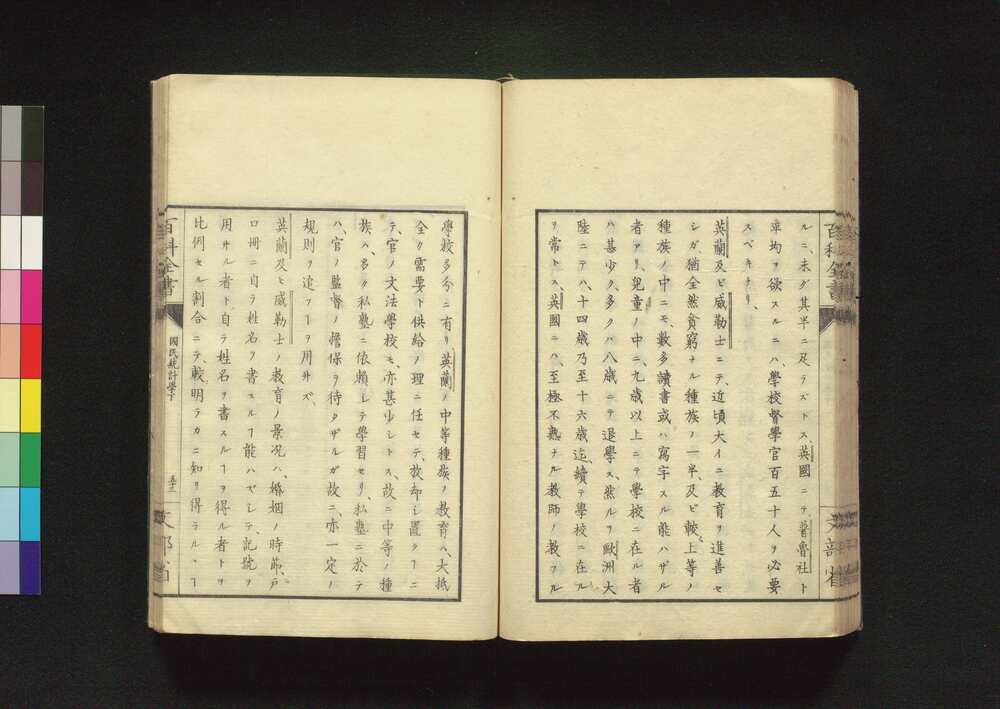 百科全書
ルニ未ダ其半ニ足ラズトス、英國ニテ、普魯社ト
平均ヲ欲スルニハ、學校督學官百五十人ヲ必要
スベキナリ、
英蘭及ヒ威勒士ニテ、近頃大イニ教育ヲ進善セ
シガ、猶全然貧窮ナル種族ノ一半、及ヒ較上等ノ
種族ノ中ニモ、數多讀書或ハ寫字スル能ハザル
者アリ、兒童ノ中ニ、九歳以上ニテ學校ニ在ル者
ハ甚少ク、多クハ八歳ニテ退學ス、然ルヲ歐洲大
陸ニテハ、十四歳乃至十六歳迄、續テ學校ニ在ル
ヲ常トス、英國ニハ、至極不熟ナル教師ノ教フル
文部省
學校多分ニ有リ、英蘭ノ中等種族ノ教育ハ、大抵
全ク需要ト供給ノ理ニ任セテ、放却シ置クヿニ
テ、官ノ文法學校モ、亦甚少シトス、故ニ中等ノ種
族ハ、多ク私塾ニ依頼シテ學習セリ、私塾ニ於テ
ハ、官ノ監督ノ擔保ヲ待タザルガ故ニ、亦一定ノ
規則ヲ追フヿヲ用ヰズ、
英蘭及ヒ威勒士ノ教育ノ景況ハ、婚姻ノ時節、戸
口冊ニ自ラ姓名ヲ書スルヿ能ハズシテ、記號ヲ
用ヰル者ト、自ラ姓名ヲ書スルヿヲ得ル者トヲ
比例セル割合ニテ、較明ラカニ知リ得ラル、ヿ
百科全書
國民統計學下
五十三
文部省